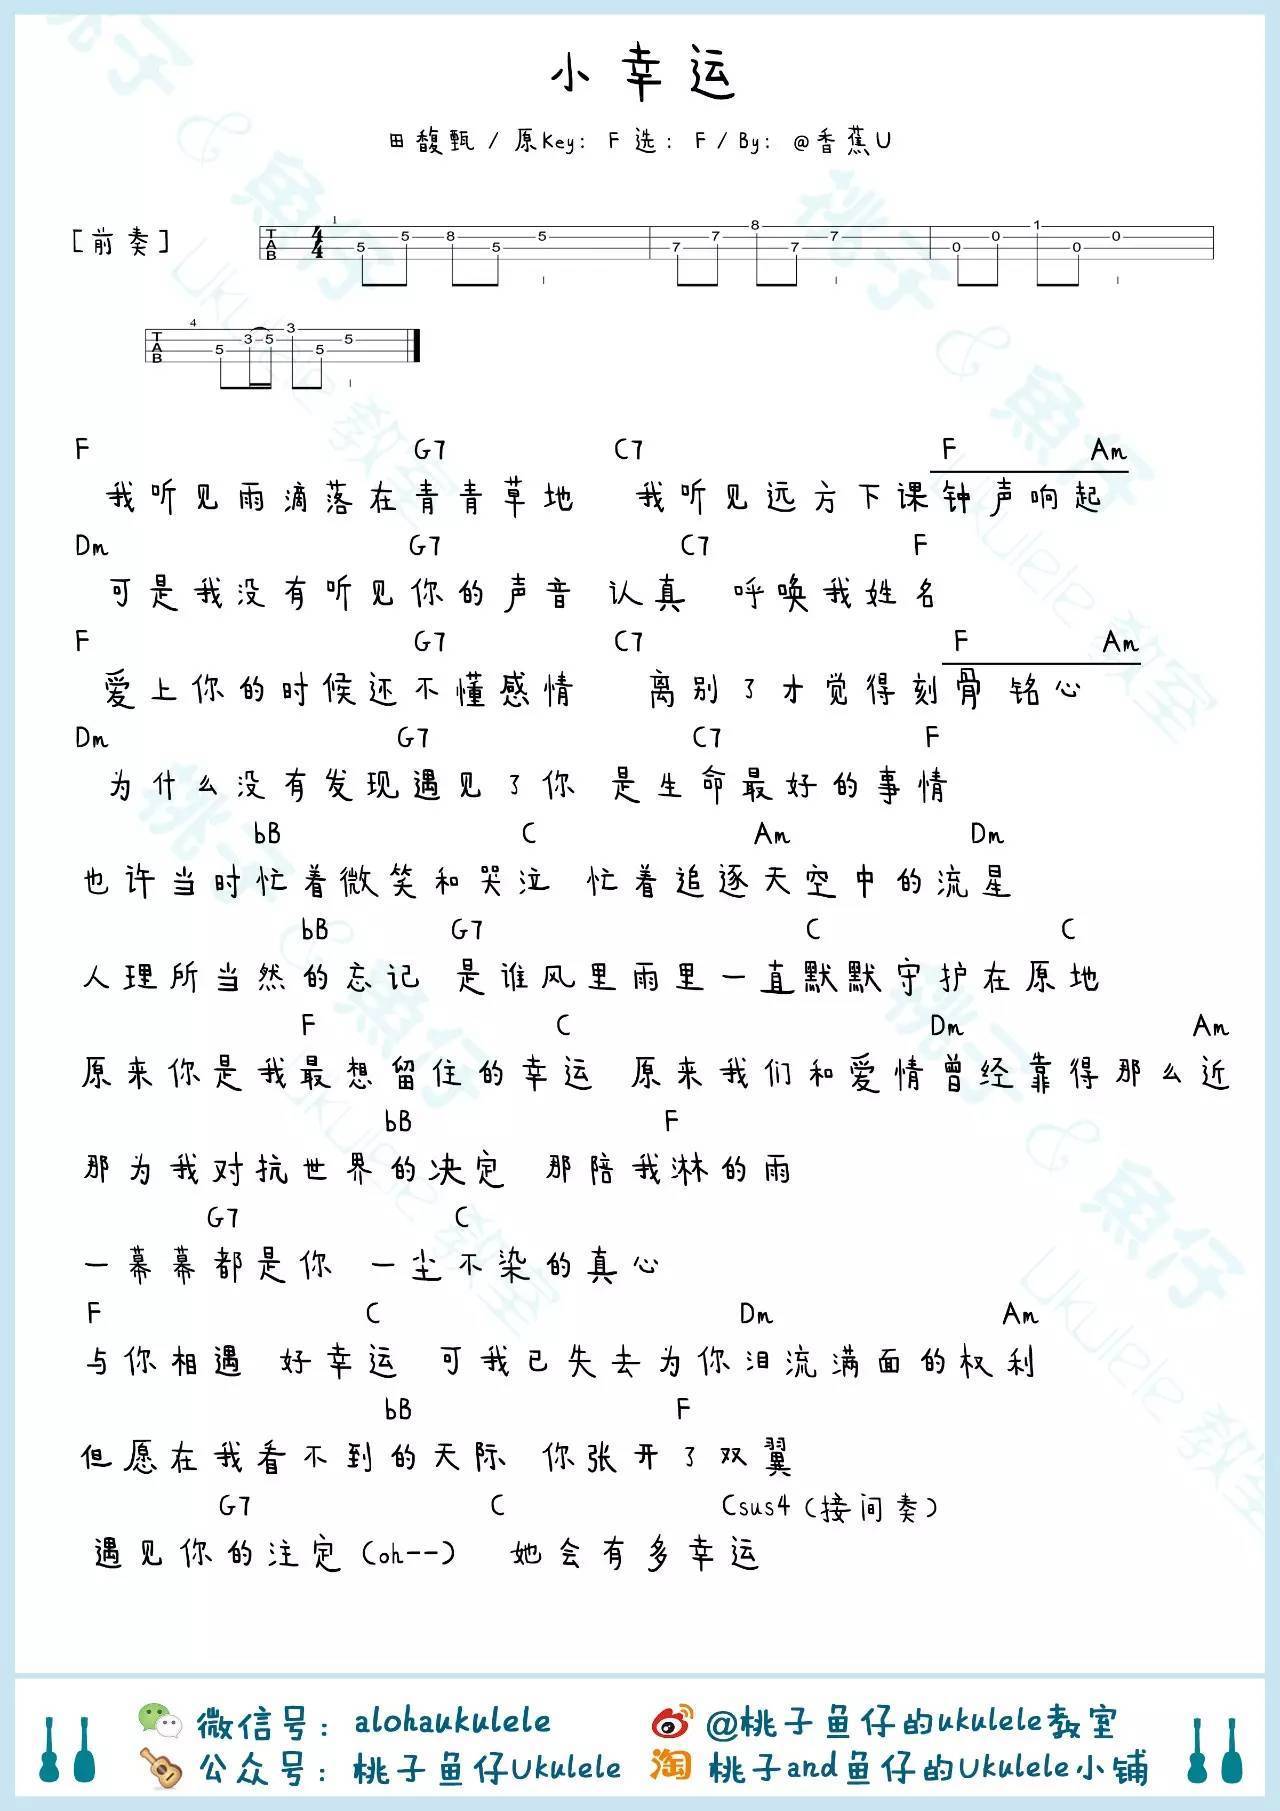 小幸运
田馥甄 / 原Key: F 选: F / By: @香蕉U
[前奏]
T A B 4/4 1 5 5 8 5 5 7 7 8 7 7 0 0 1 0 0
T A B 4 5 3 5 3 5 5
F G7 C7 F Am
我听见雨滴落在青青草地 我听见远方下课钟声响起
Dm G7 C7 F
可是我没有听见你的声音 认真 呼唤我姓名
F G7 C7 F Am
爱上你的时候还不懂感情 离别了才觉得刻骨 铭心
Dm G7 C7 F
为什么没有发现遇见了你 是生命最好的事情
bB C Am Dm
也许当时忙着微笑和哭泣 忙着追逐天空中的流星
bB G7 C C
人理所当然的忘记 是谁风里雨里一直默默守护在原地
F C Dm Am
原来你是我最想留住的幸运 原来我们和爱情曾经靠得那么近
bB F
那为我对抗世界的决定 那陪我淋的雨
G7 C
一幕幕都是你 一尘不染的真心
F C Dm Am
与你相遇 好幸运 可我已失去为你泪流满面的权利
bB F
但愿在我看不到的天际 你张开了双翼
G7 C Csus4 (接间奏)
遇见你的注定 (oh--) 她会有多幸运
微信号: alohaukulele
@桃子鱼仔的ukulele教室
公众号: 桃子鱼仔Ukulele
淘 桃子and鱼仔的Ukulele小铺
桃子 & 魚仔 Ukulele 教室
桃子 & 魚仔 Ukulele 教室
桃子 & 魚仔 Ukulele 教室
桃子 & 魚仔 Ukulele 教室